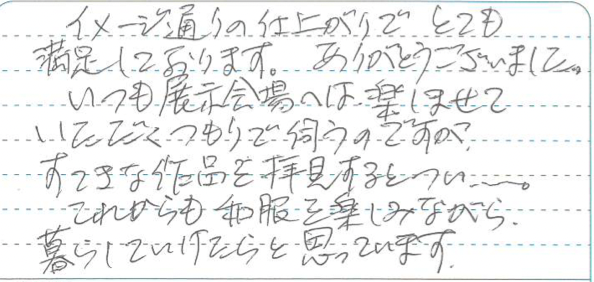 イメージ通りの仕上がりでとても
満足しております。ありがとうございました。
いつも展示会場へは楽しませて
いただくつもりで伺うのですが、
すてきな作品を拝見するとつい……。
これからも和服を楽しみながら、
暮らしていけたらと思っています。